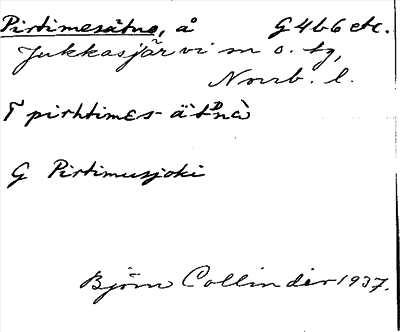 Pirtimesätno, å G4b6 etc.
Jukkasjärvi sn o. tg,
Norrb. l.
T pirhtimɛs-ätᴰnà
G Pirtimusjoki
Björn Collinder 1937.